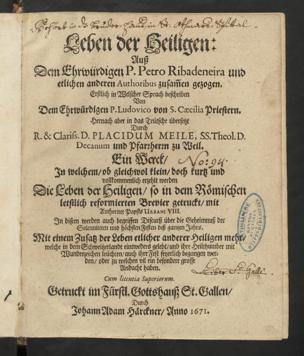 Leben der Heiligen:
Auß
Dem Ehrwürdigen P. Petro Ribadeneira und
etlichen anderen Authoribus zusamen gezogen.
Erstlich in Welscher Sprach beschriben
Von
Dem Ehrwürdigen P. Ludovico von S. Cæcilia Priestern.
Hernach aber in das Teutsche übersetzt
Durch
R. & Clariss. D. PLACIDUM MEILE, SS. Theol. D.
Decanum und Pfarrherrn zu Weil.
Ein Werck/
No: 94
In welchem/ ob gleichwol klein/ doch kurtz und
vollkommentlich erzehlt werden
Die Leben der Heiligen/ so in dem Römischen
letstlich reformierten Brevier getruckt/ mit
Authoritet Papsts URBANI VIII.
In dissem werden auch begriffen Discurß über die Geheimnuß der
Solenniteten und höchsten Festen deß gantzen Jahrs.
Mit einem Zusatz der Leben etlicher anderer Heiligen mehr/
welche in dem Schweitzerlande eintweders gelebt/ und ihre Heilthumber mit
Wunderzeichen leuchten/ auch ihre Fest feyrlich begangen wer-
den/ oder zu welchen vil ein besondere grosse
Andacht haben.
Cum licentia Superiorum.
Getruckt im Fürstl. Gottshauß St. Gallen/
Durch
Johann Adam Härckner/ Anno 1671.